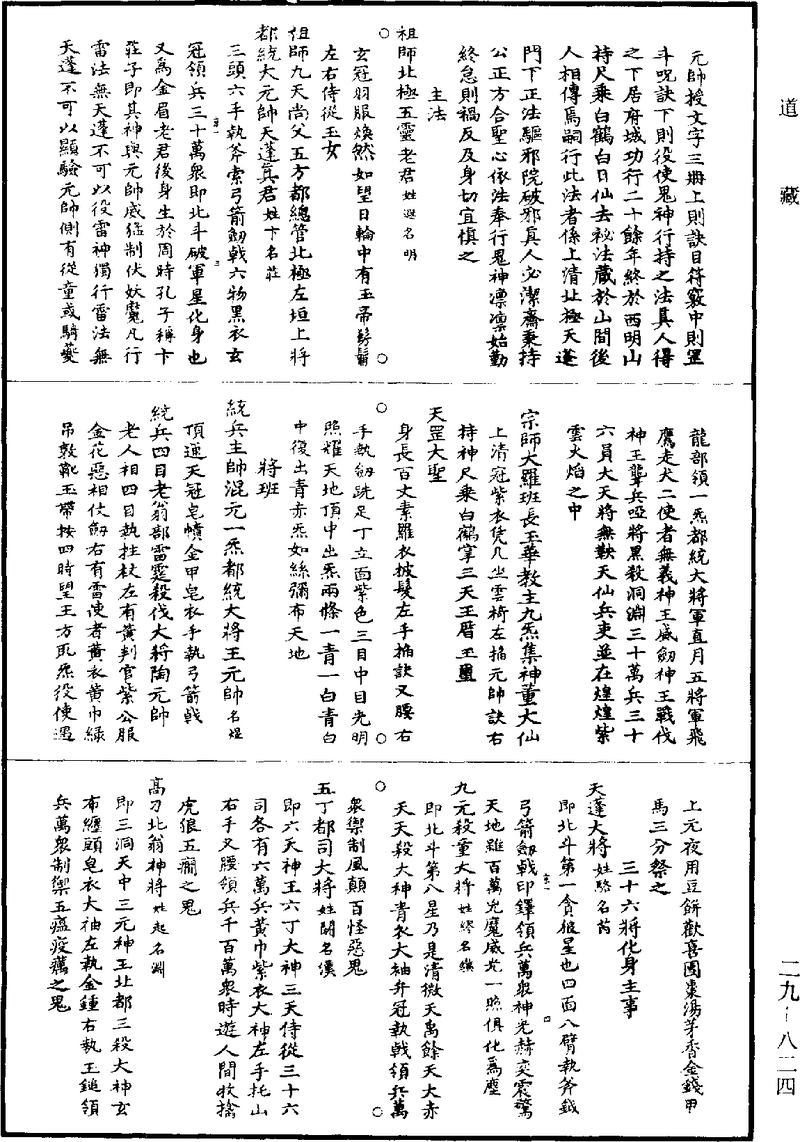 道藏
元帥授文字三冊上則訣目符竅中則罡
斗呪訣下則役使鬼神行持之法真人得
之下居府城功行二十餘年終於西明山
持尺乘白鶴白日仙去祕法藏於山間後
人相傳焉嗣行此法者係上清北極天蓬
門下正法驅邪院破邪真人必潔齋秉持
公正方合聖心依法奉行鬼神凜凜始勤
終怠則禍反及身切宜慎之
主法
祖師北極五靈老君姓逃名明
玄冠羽服煥然如望日輪中有玉帝髣髴
左右侍從玉女
祖師九天尚父五方都總管北極左垣上將
都統大元帥天蓬真君姓卞名莊
三頭六手執斧索弓箭劒戟六物黑衣玄
冠領兵三十萬衆即北斗破軍星化身也
又為金眉老君後身生於周時孔子稱卞
莊子即其神與元帥威猛制伏妖魔凡行
雷法無天蓬不可以役雷神獨行雷法無
天蓬不可以顯驗元帥側有從童或騎夔
龍部領一炁都統大將軍直月五將軍飛
鷹走犬二使者無義神王威劒神王戰伐
神王聾兵啞將黑殺洞淵三十萬兵三十
六員大天將無鞅天仙兵吏並在煌煌紫
雲火焰之中
宗師大羅班長玉華教主九炁集神董大仙
上清冠紫衣凭几坐雲椅左掐元帥訣右
持神尺乘白鶴掌三天玉曆玉璽
天罡大聖
身長百丈素羅衣披髮左手掐訣叉腰右
手執劒跣足丁立面紫色三目中目光明
照耀天地頂中出炁兩條一青一白青白
中復出青赤炁如絲彌布天地
將班
統兵主帥混元一炁都統大將王元帥名焜
頂運天冠皂幘金甲皂衣手執弓箭戟
統兵四目老翁部雷霆殺伐大將陶元帥
老人相四目執拄杖左有黃判官紫公服
金花惡相仗劒右有雷使者黃衣黃巾綠
吊敦靴玉帶按四時望王方取炁役使遇
上元夜用豆餅歡喜團棗湯茅香金錢甲
馬三分祭之
三十六將化身主事
天蓬大將姓駱名芮
即北斗第一貪狼星也四面八臂執斧鉞
弓箭劒戟印鐸領兵萬衆神光赫奕震驚
天地雖百萬兇魔威光一照俱化為塵
九元殺童大將姓繆名
即北斗第八星乃是清微天萬餘天大赤
天天殺大神青衣大袖弁冠執戟領兵萬
衆禦制風顛百怪惡鬼
五丁都司大將姓關名
即六天神王六丁大神三天侍從三十六
司各有六萬兵黃巾紫衣大神左手托山
右手叉腰領兵千百萬衆時遊人間收擒
虎狼五癇之鬼
高刁北翁神將姓起名淵
即三洞天中三元神王北都三殺大神玄
布纏頭皂衣大袖左執金鍾右執玉鎚領
兵萬衆制禦五瘟疫癘之鬼
二九-八二四